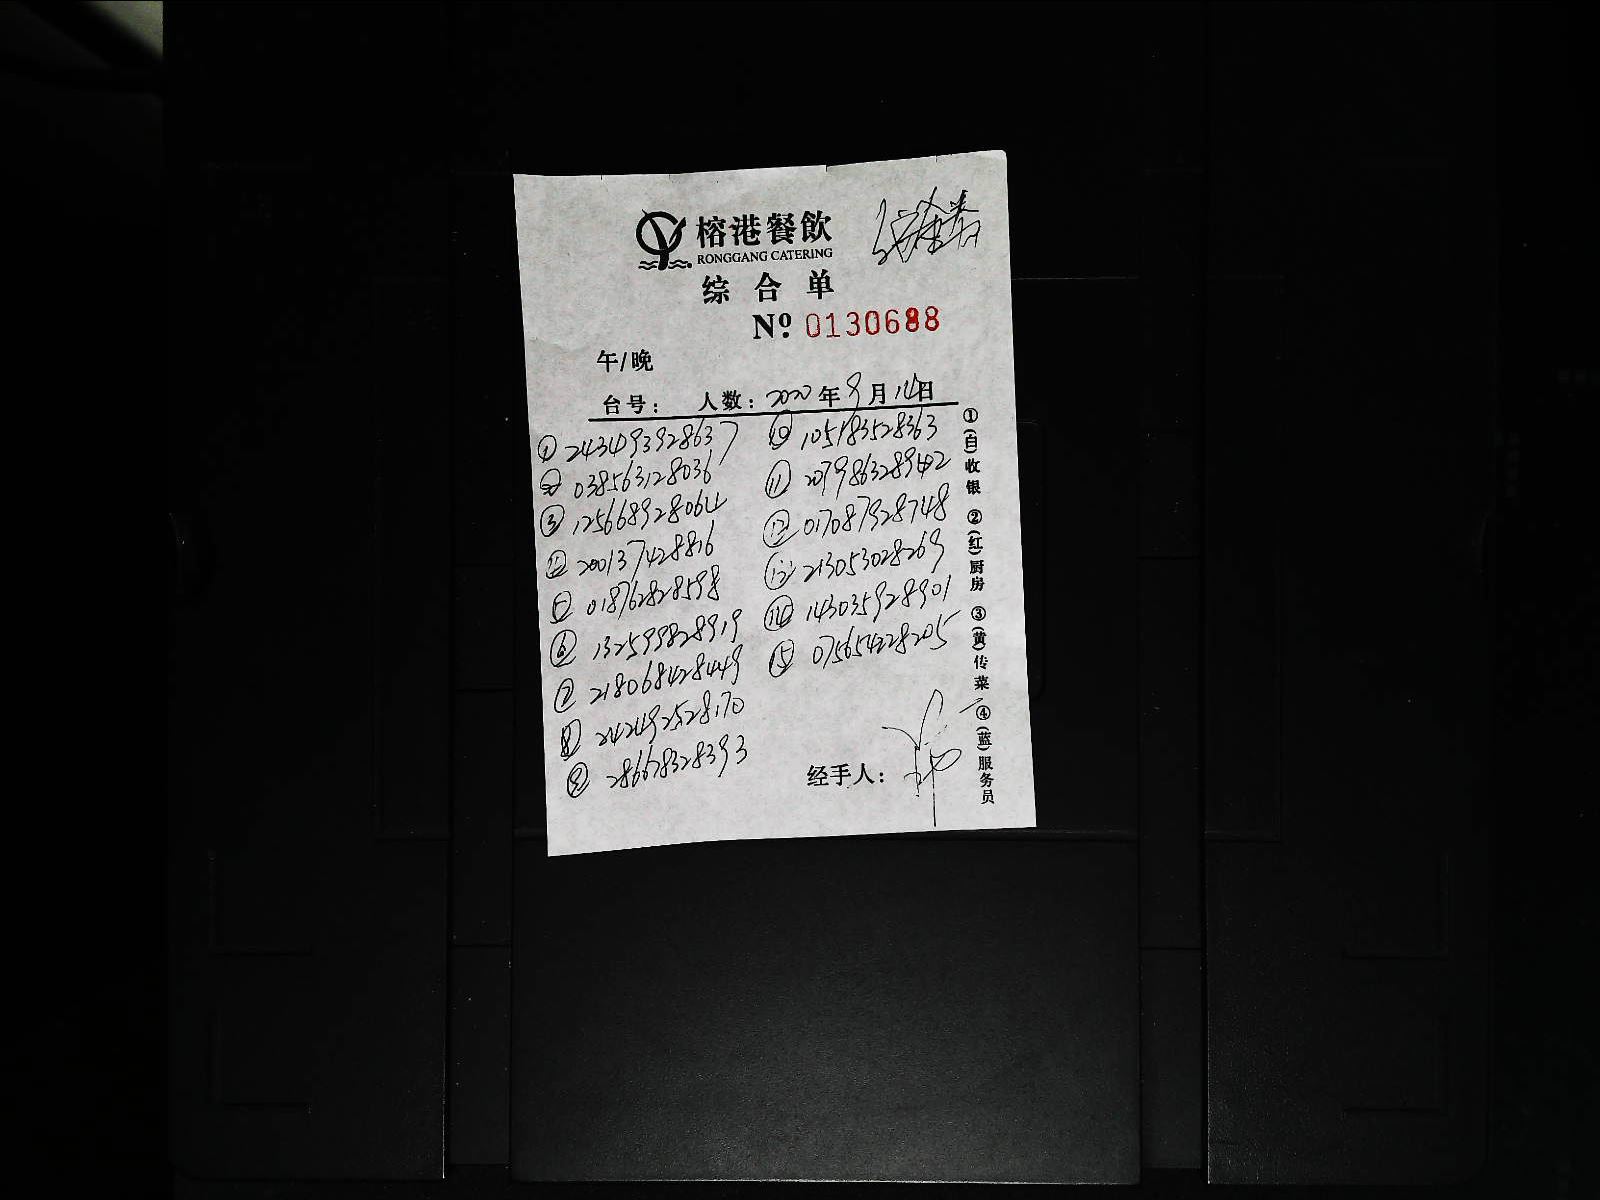 榕港餐飲
RONGGANG CATERING
综合单
Nº 0130688
午/晚
台号： 人数： 2020年9月14日
① 2434093928637
② 038563128036
③ 125668928064
④ 200137428816
⑤ 018762828598
⑥ 132599828919
⑦ 218068428449
⑧ 242492528170
⑨ 286678328393
⑩ 105183528363
⑪ 207986328942
⑫ 017087928748
⑬ 213053028269
⑭ 143035928901
⑮ 075654228205
经手人：
①(白)收银 ②(红)厨房 ③(黄)传菜 ④(蓝)服务员